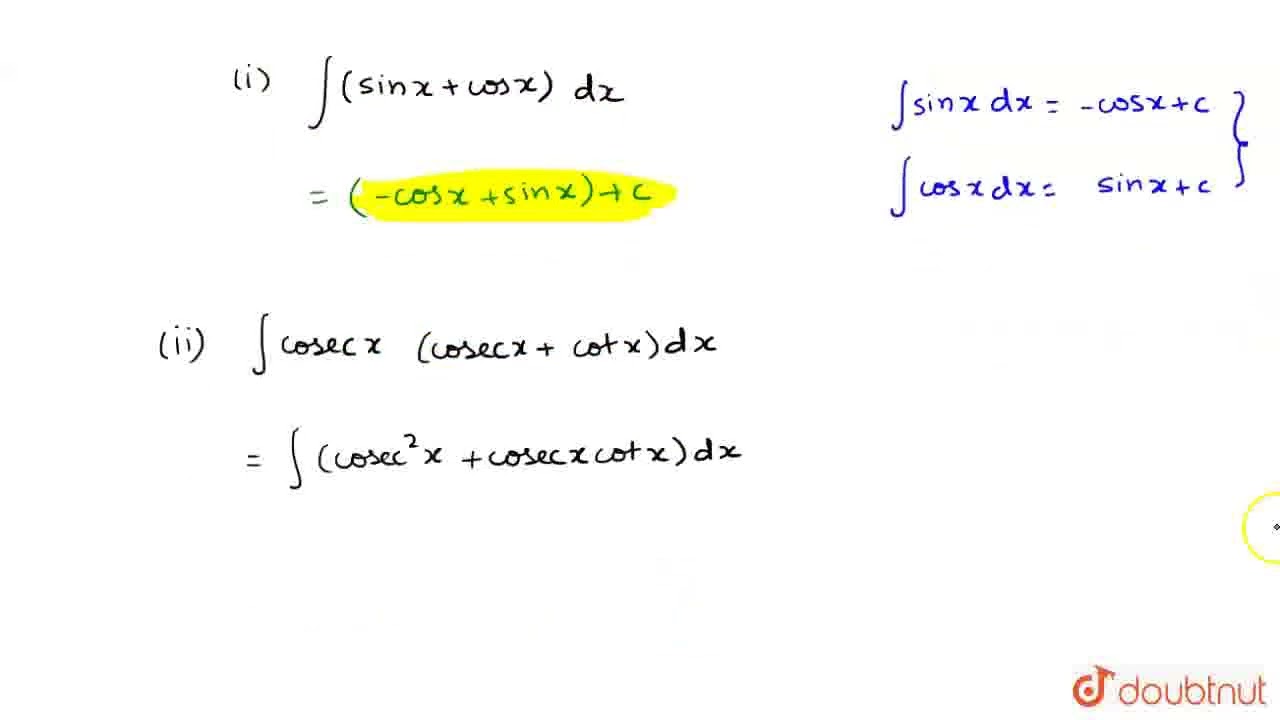 (i) ∫(sinx + cosx) dx
= (-cosx + sinx) + c
∫sinx dx = -cosx + c
∫cosx dx = sinx + c
(ii) ∫cosecx (cosecx + cotx) dx
= ∫(cosec²x + cosecx cotx) dx
doubtnut